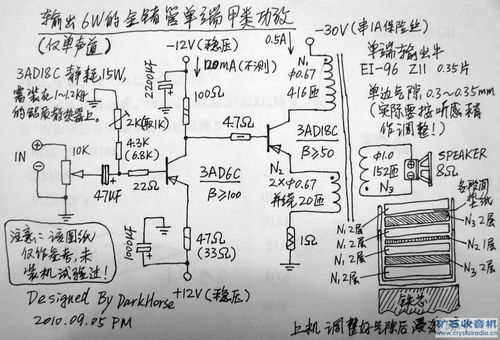 输出6W的金锗管单端甲类功放
(仅单声道)
-12V(稳压)
0.5A
-30V(串1A保险丝)
3AD18C 静耗15W,
需装在1~1.2Kg
的铝质散热器上.
2200μF
120mA(不测)
100Ω
2K(取1K)
4.3K
(6.8K)
4.7Ω
N₁
φ0.67
416匝
单端输出牛
EI-96 Z11 0.35片
单边气隙 0.3~0.35mm
(实际需接听感稍
作调整!)
3AD18C
β≥50
IN
10K
47μF
22Ω
3AD6C
β≥100
N₂
2×φ0.67
并绕20匝
φ1.0
152匝
N₃
SPEAKER
8Ω
各段间
垫纸
1000μF
47Ω
(33Ω)
1Ω
N₁ 2层
N₃ 2层
N₁ 2层
N₂ 1层
N₁ 2层
N₃ 2层
N₁ 2层
铁芯
+12V(稳压)
注意: 该图纸
仅作参考, 未
装机试验过!
Designed By DarkHorse
2010.09.05 PM
上机调整好气隙后
矿石收音机
www.crystalradio.cn